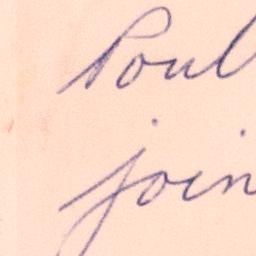 Poul
join